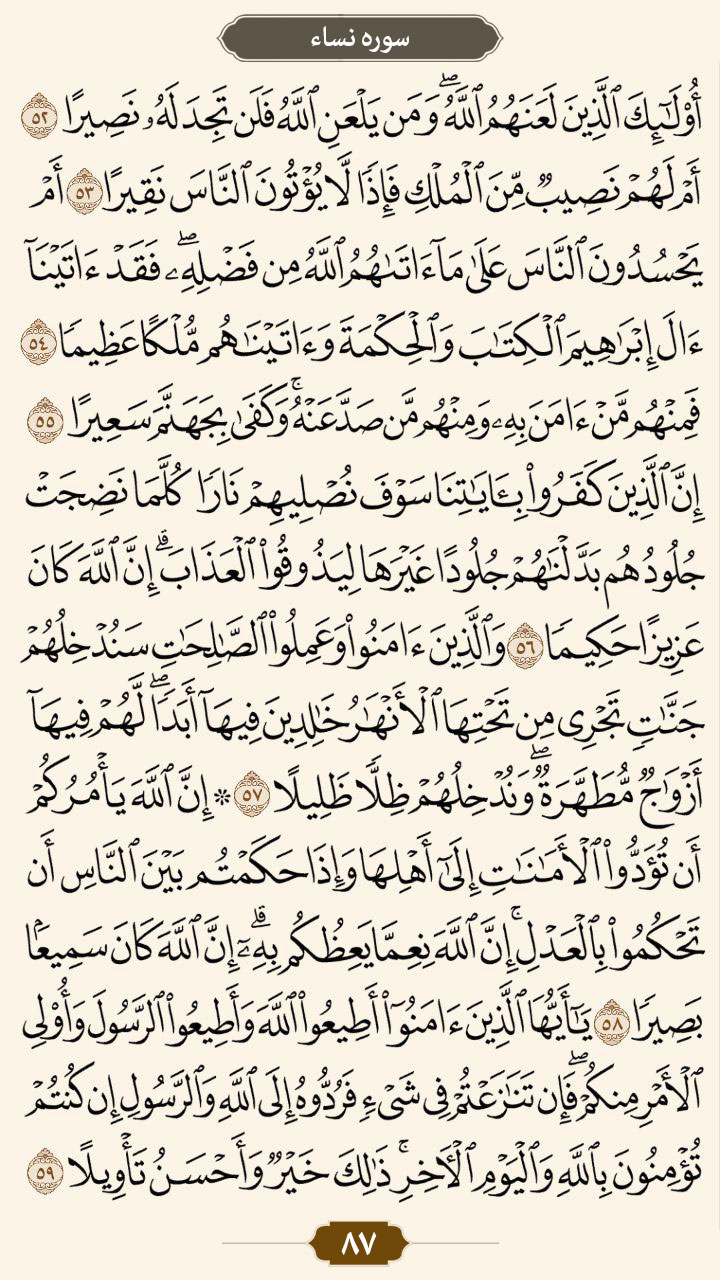 سوره نساء
أُوْلَـٰٓئِكَ ٱلَّذِينَ لَعَنَهُمُ ٱللَّهُۖ وَمَن يَلْعَنِ ٱللَّهُ فَلَن تَجِدَ لَهُۥ نَصِيرًا ٥٢
أَمْ لَهُمْ نَصِيبٌ مِّنَ ٱلْمُلْكِ فَإِذًا لَّا يُؤْتُونَ ٱلنَّاسَ نَقِيرًا ٥٣ أَمْ
يَحْسُدُونَ ٱلنَّاسَ عَلَىٰ مَآ ءَاتَىٰهُمُ ٱللَّهُ مِن فَضْلِهِۦۖ فَقَدْ ءَاتَيْنَآ
ءَالَ إِبْرَٰهِيمَ ٱلْكِتَـٰبَ وَٱلْحِكْمَةَ وَءَاتَيْنَـٰهُم مُّلْكًا عَظِيمًا ٥٤
فَمِنْهُم مَّنْ ءَامَنَ بِهِۦ وَمِنْهُم مَّن صَدَّ عَنْهُۚ وَكَفَىٰ بِجَهَنَّمَ سَعِيرًا ٥٥
إِنَّ ٱلَّذِينَ كَفَرُواْ بِـَٔايَـٰتِنَا سَوْفَ نُصْلِيهِمْ نَارًا كُلَّمَا نَضِجَتْ
جُلُودُهُم بَدَّلْنَـٰهُمْ جُلُودًا غَيْرَهَا لِيَذُوقُواْ ٱلْعَذَابَۗ إِنَّ ٱللَّهَ كَانَ
عَزِيزًا حَكِيمًا ٥٦ وَٱلَّذِينَ ءَامَنُواْ وَعَمِلُواْ ٱلصَّـٰلِحَـٰتِ سَنُدْخِلُهُمْ
جَنَّـٰتٍ تَجْرِى مِن تَحْتِهَا ٱلْأَنْهَـٰرُ خَـٰلِدِينَ فِيهَآ أَبَدًاۖ لَّهُمْ فِيهَآ
أَزْوَٰجٌ مُّطَهَّرَةٌۖ وَنُدْخِلُهُمْ ظِلًّا ظَلِيلًا ٥٧ ۞ إِنَّ ٱللَّهَ يَأْمُرُكُمْ
أَن تُؤَدُّواْ ٱلْأَمَـٰنَـٰتِ إِلَىٰٓ أَهْلِهَا وَإِذَا حَكَمْتُم بَيْنَ ٱلنَّاسِ أَن
تَحْكُمُواْ بِٱلْعَدْلِۚ إِنَّ ٱللَّهَ نِعِمَّا يَعِظُكُم بِهِۦٓۗ إِنَّ ٱللَّهَ كَانَ سَمِيعًۢا
بَصِيرًا ٥٨ يَـٰٓأَيُّهَا ٱلَّذِينَ ءَامَنُوٓاْ أَطِيعُواْ ٱللَّهَ وَأَطِيعُواْ ٱلرَّسُولَ وَأُوْلِى
ٱلْأَمْرِ مِنكُمْۖ فَإِن تَنَـٰزَعْتُمْ فِى شَىْءٍ فَرُدُّوهُ إِلَى ٱللَّهِ وَٱلرَّسُولِ إِن كُنتُمْ
تُؤْمِنُونَ بِٱللَّهِ وَٱلْيَوْمِ ٱلْـَٔاخِرِۚ ذَٰلِكَ خَيْرٌ وَأَحْسَنُ تَأْوِيلًا ٥٩
٨٧